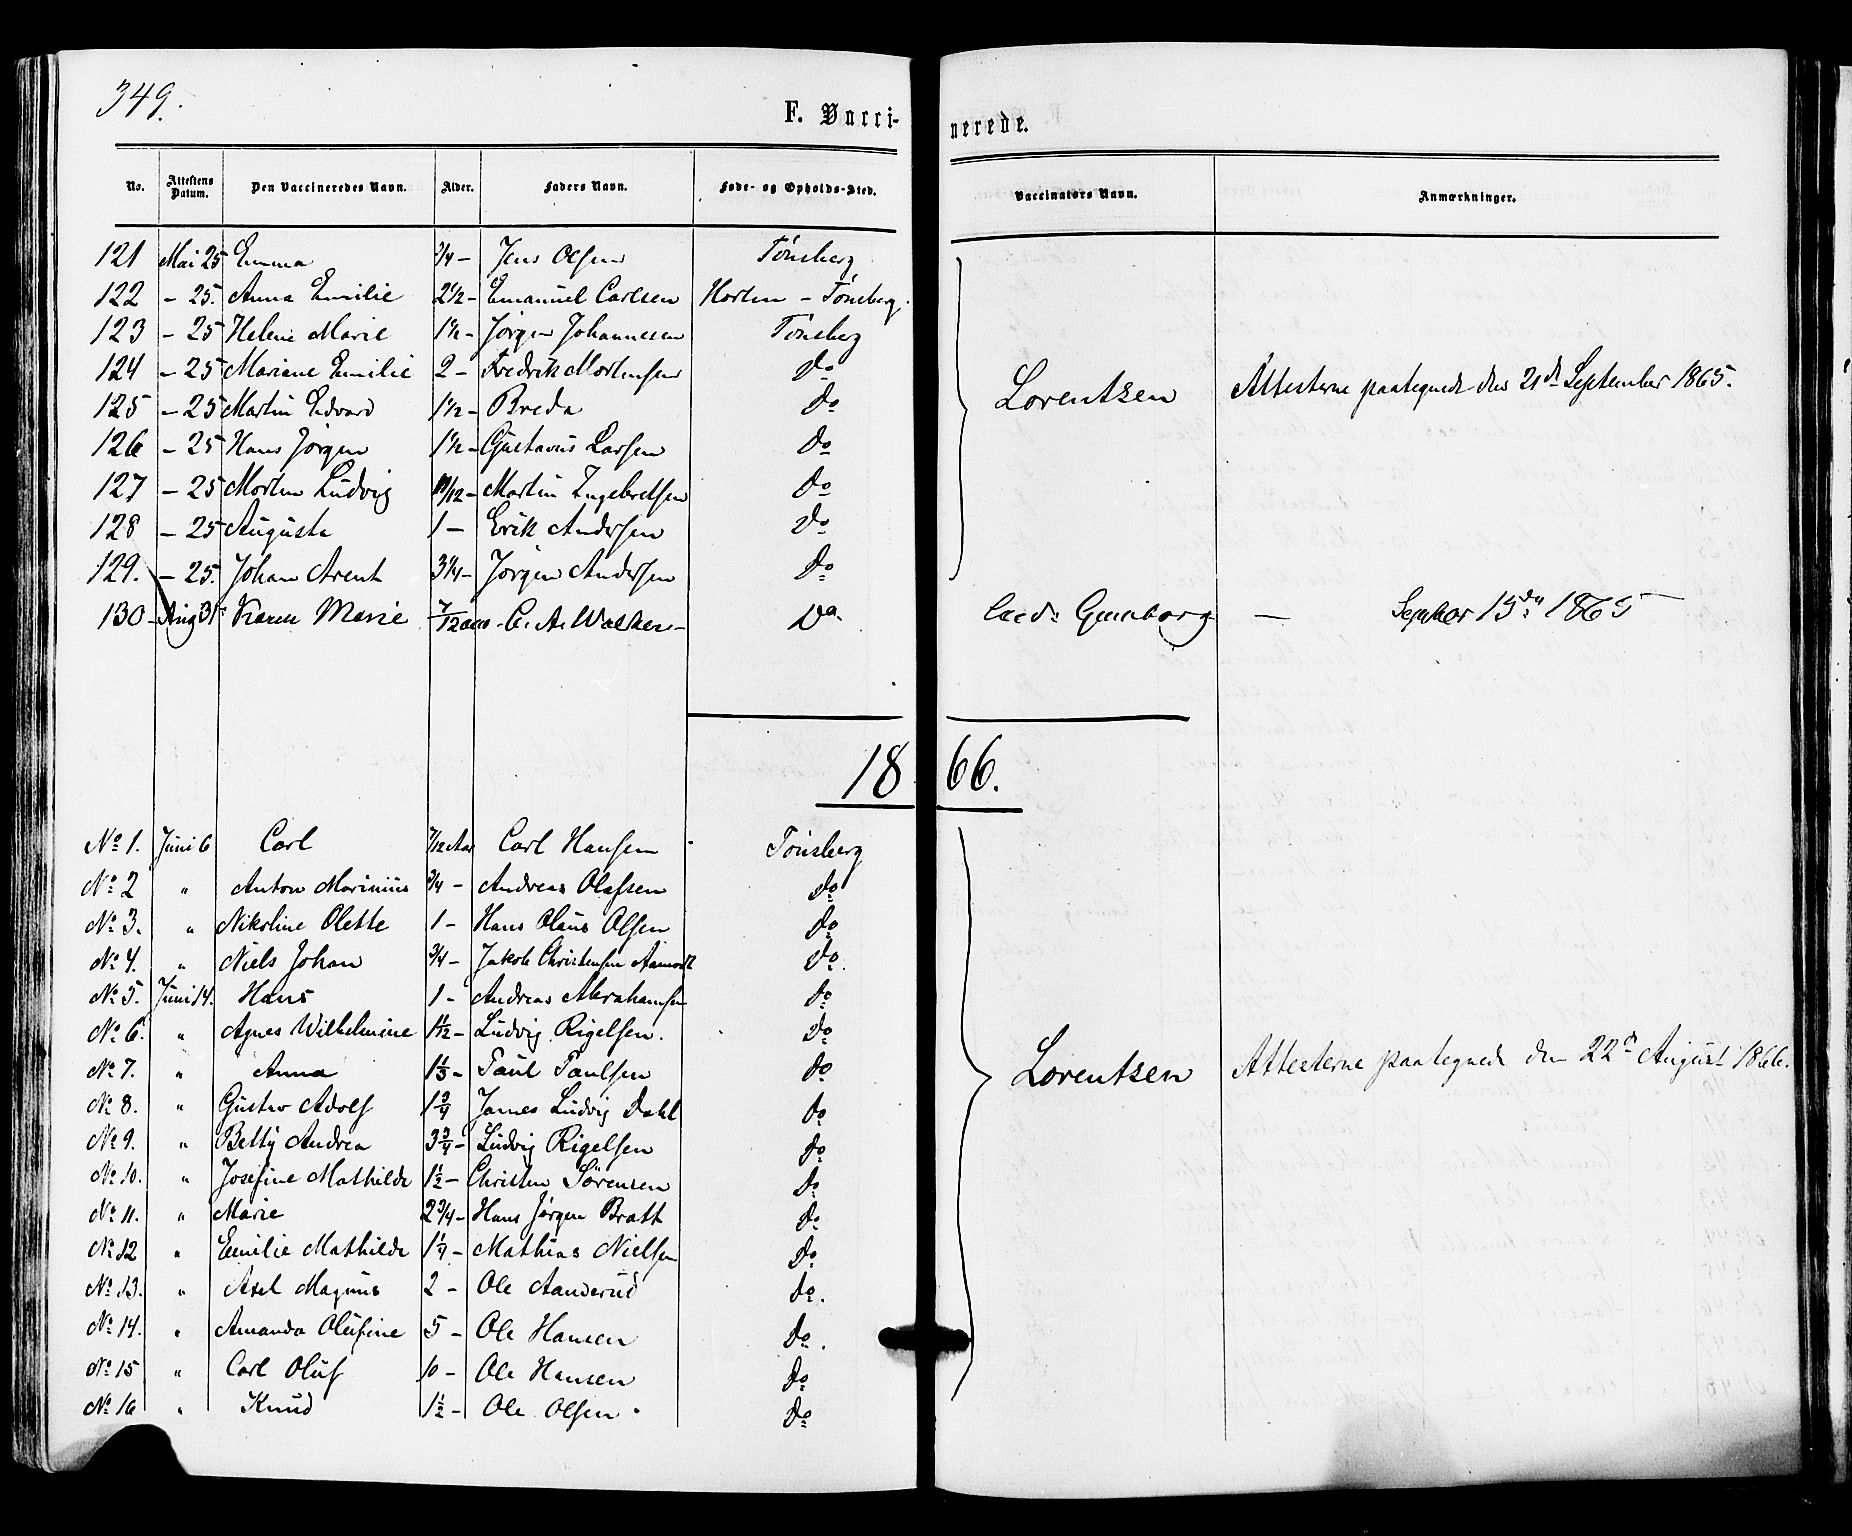 349.
F. Vacci-nerede.
No. Attestens Datum. Den Vaccineredes Navn. Alder. Faders Navn. Føde- og Opholds-Sted. Vaccinators Navn. Anmærkninger.
121 Mai 25 Emma 3/4 - Jens Olsen Tønsberg
122 - 25. Anna Emilie 2 1/2 - Emanuel Carlsen Horten - Tønsberg.
123 - 25 Helene Marie 1 1/2 - Jørgen Johannesen Tønsberg
124 - 25 Mariane Emilie 2 - Fredrik Mortensen Do Lorentsen Attesterne paategnede den 21de September 1865.
125 - 25 Martin Edvard 1 1/2 - Breda Do
126 - 25 Hans Jørgen 1 1/2 - Gustavus Larsen Do
127 - 25 Morten Ludvig /12 - Martin Ingebretsen Do
128 - 25 Augusta 1 - Erik Andersen Do
129. - 25. Johan Arent 3 1/4 - Jørgen Andersen Do
130 - Aug 31 Karen Marie 7/12 - C. A. Do - 15de 1865
1866.
No 1. Juni 6 Carl 7/12 Aar Carl Hansen Tønsberg
No 2 " Anton Marinius 3/4 - Andreas Olafsen Do
No 3. " Nikoline Olette 1 - Hans Olaus Olsen Do
No 4. " Niels Johan 3/4 - Jakob Christensen Aamodt Do.
No 5. Juni 14. Hans 1 - Andreas Abrahamsen Do
No 6. " Agnes Wilhelmine 1 1/12 - Ludvig Rigelsen. Do
No 7. " Anna 1 1/3 - Paul Paulsen Do Lorentsen Attesterne paategnede den 22de August 1866.
No 8. " Gustav Adolf 1 3/4 James Ludvig Dahl Do
No 9. " Betty Andrea 3 3/4 - Ludvig Rigelsen Do
No 10. " Josefine Mathilde 1 1/2 - Christen Sørensen Do
No 11. " Marie 2 3/4 - Hans Jørgen Bratt Do
No 12 " Emilie Mathilde 1 1/4 - Mathias Nielsen Do
No 13. " Axel Magnus 2 - Ole Aanderud Do.
No 14. " Amanda Olufine 5 - Ole Hansen Do.
No 15 " Carl Oluf 10 - Ole Hansen Do
No 16 " Knud 1 1/2 - Ole Olsen. Do